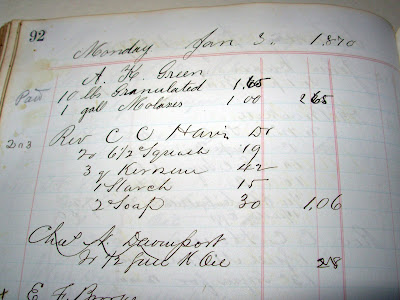 92
Monday Jan 3. 1870
A. H. Green
Paid 10 lbs Granulated 1.65
1 gall Molases 1 00 265
Rev C C Harris Dr
To 6 1/2 Squash 19
3 q Kerosene 42
1 Starch 15
2 Soap 30 1.06
Chas H. Davenport
To 1/2 Gall K Oil 28
E F Brooks